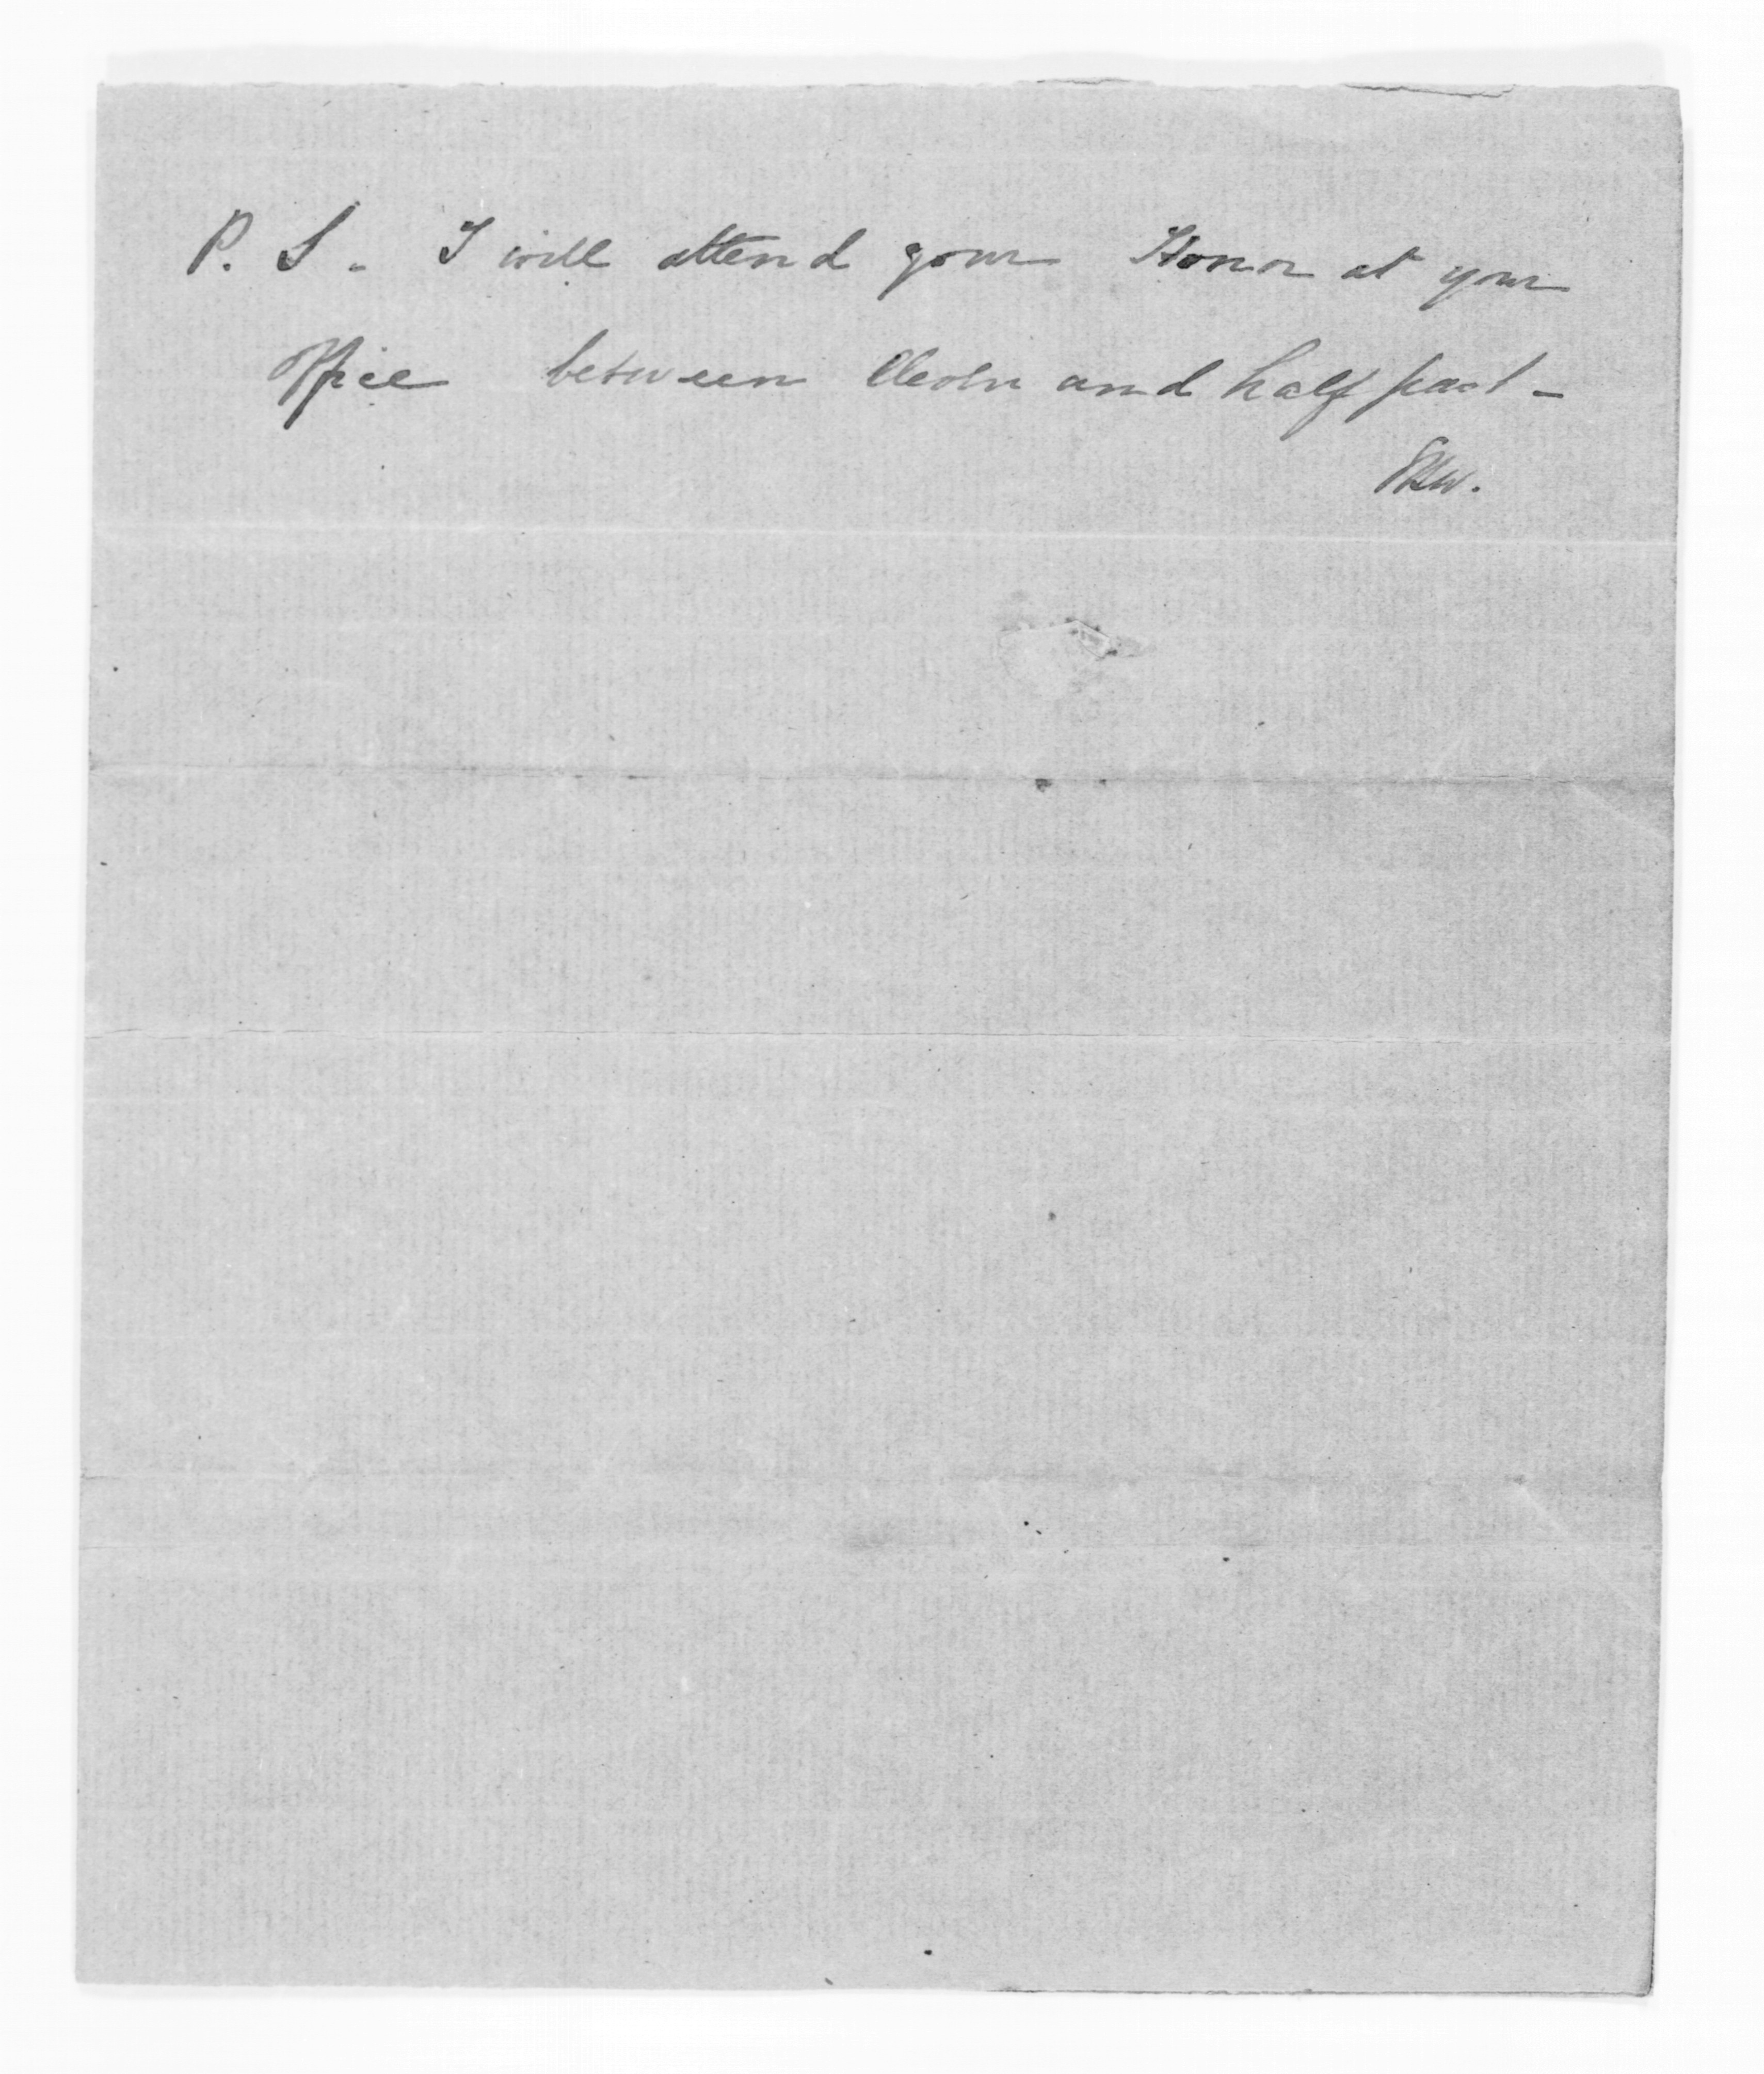 P. S. I will attend your Honor at your
Office between and half past -